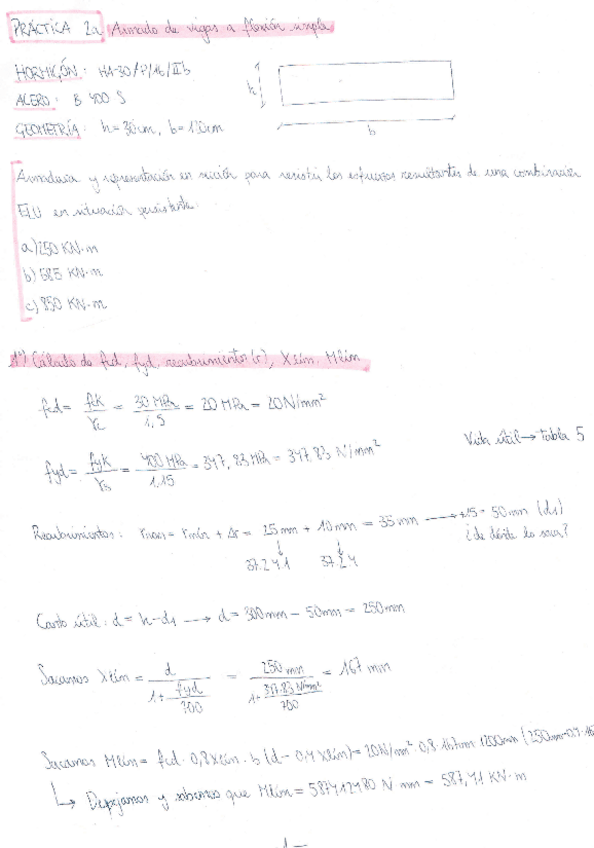 PRÁCTICA 2a Armado de vigas a flexión simple
HORMIGÓN: HA-30/P/16/IIb
ACERO: B 400 S
GEOMETRÍA: h=30cm, b=120cm
h
b
Armadura y representación en sección para resistir los esfuerzos resultantes de una combinación
ELU en situación persistente.
a) 250 KN·m
b) 585 KN·m
c) 850 KN·m
1º) Cálculo de fcd, fyd, recubrimientos (r), Xlím. Mlím
fcd = fck/γc = 30 MPa/1,5 = 20 MPa = 20 N/mm²
Vida útil → tabla 5
fyd = fyk/γs = 400 MPa/1,15 = 347,83 MPa = 347,83 N/mm²
Recubrimientos: rnom = rmín + Δr = 25mm + 10mm = 35mm → +15 = 50mm (d1)
37.2.4.1 37.2.4 ¿de dónde lo saca?
Canto útil: d = h - d1 → d = 300mm - 50mm = 250mm
Sacamos Xlím = d/(1 + fyd/700) = 250 mm/(1 + 347.83 N/mm²/700) = 167 mm
Sacamos Mlím = fcd · 0,8 Xlím · b (d - 0,4 Xlím) = 20N/mm² · 0,8 · 167mm · 1200mm (250mm - 0,4 · 16
↳ Despejamos y sabemos que Mlím = 587412480 N·mm = 587,41 KN·m